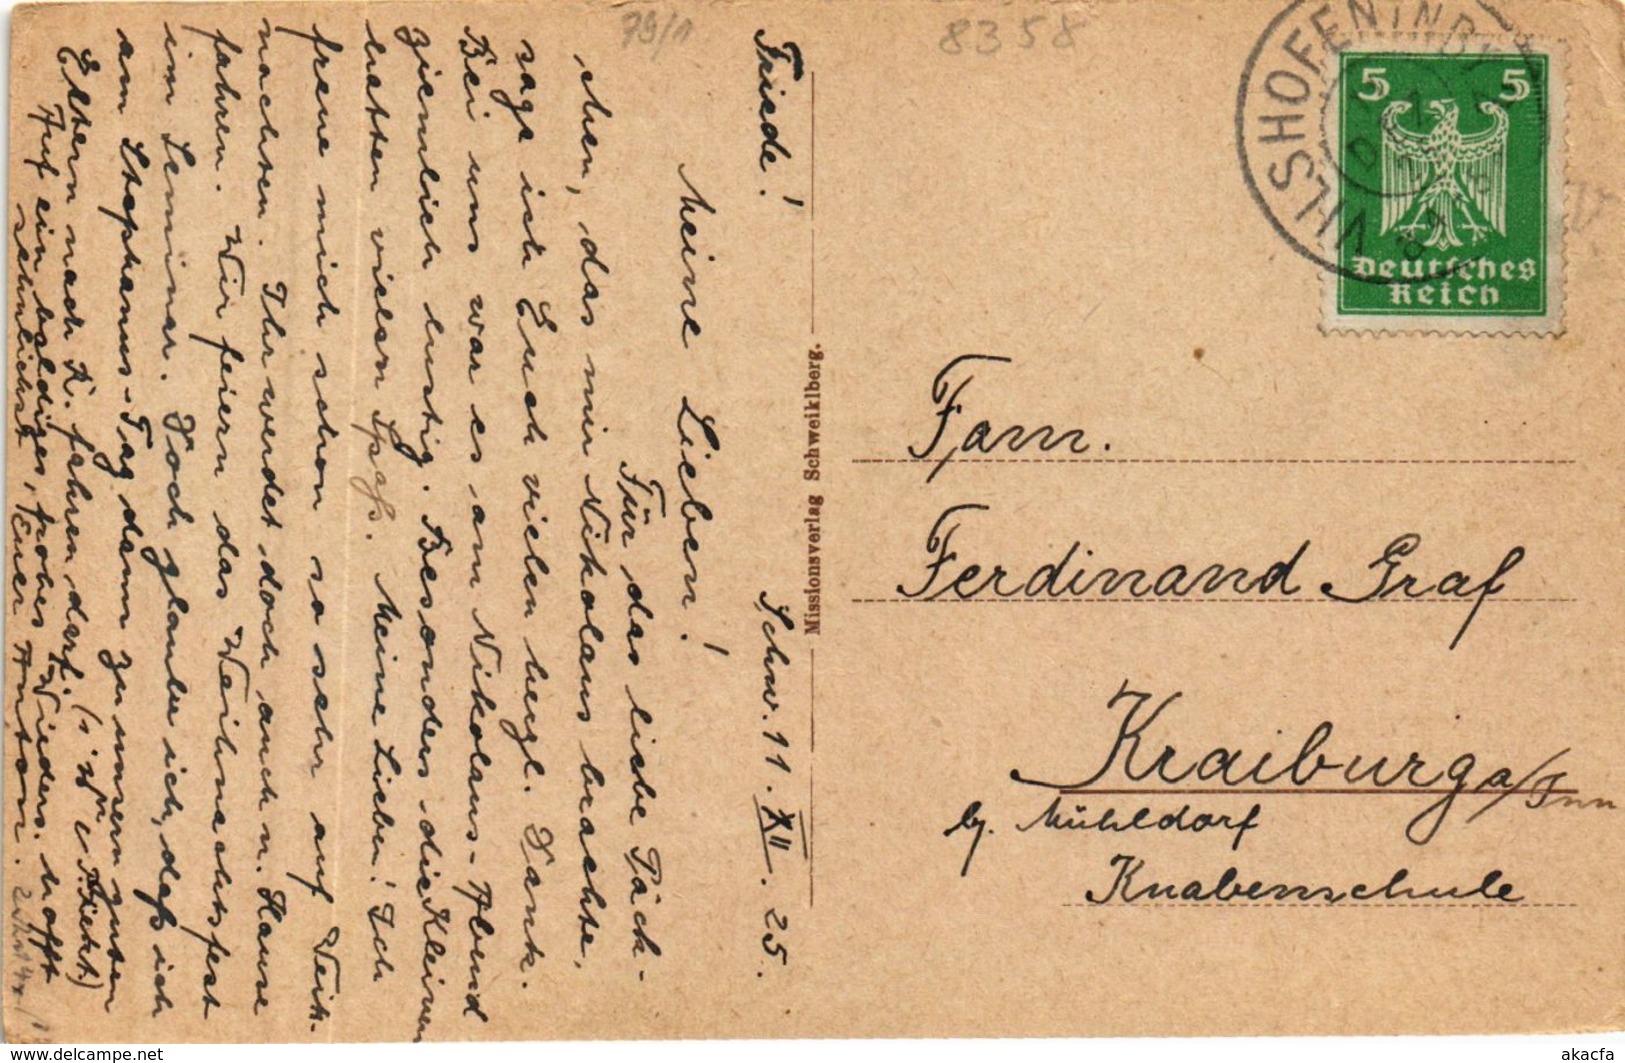 79/1
8358
VILSHOFEN IN NDB.
5 5
Deutsches
Reich
Friede!
Schw. 11. XII. 25.
Meine Lieben!
Für das liebe Päck-
chen, das mir Nikolaus brachte,
sage ich Euch vielen hezl. Dank.
Bei uns war es am Nikolaus-Abend
ziemlich lustig. Besonders die Kleinen
hatten vielen Spaß. Meine Lieben! Ich
freue mich schon so sehr auf Weih-
nachten. Ihr werdet doch auch n. Hause
fahren. Wir feiern das Weihnachtsfest
im Seminar. Doch glaube ich, daß ich
am Stephanus-Tag dann zu unsern guten
Eltern nach K. fahren darf.
Auf ein baldiges, frohes Wieders. hofft
sehnlichst, Euer Anton.
Missionsverlag Schweiklberg.
Fam.
Ferdinand Graf
Kraiburg a/Inn
b. Mühldorf
Knabenschule
akacfa